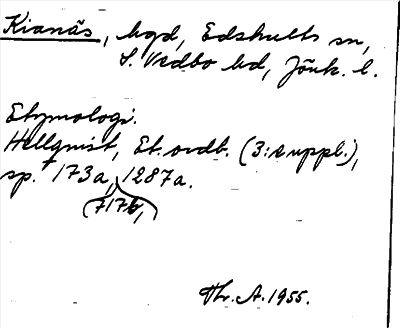 Kianäs, bgd, Edshults sn,
S. Vedbo hd, Jönk. l.
Etymologi.
Hellquist, Et. ordb. (3:e uppl.),
sp. 173a, 1287a.
(717b,)
Thr. A. 1955.